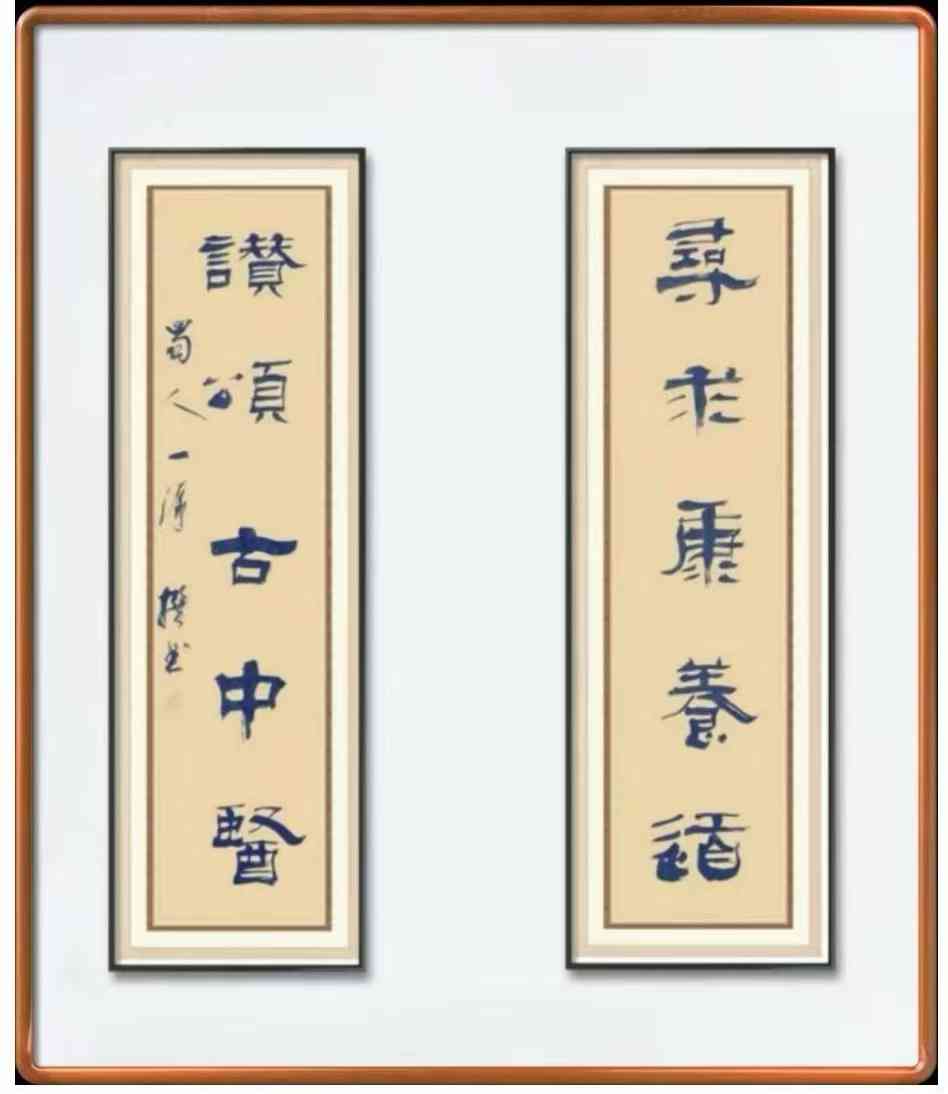 尋求康養道
讚頌古中醫
蜀人一渾 撰書